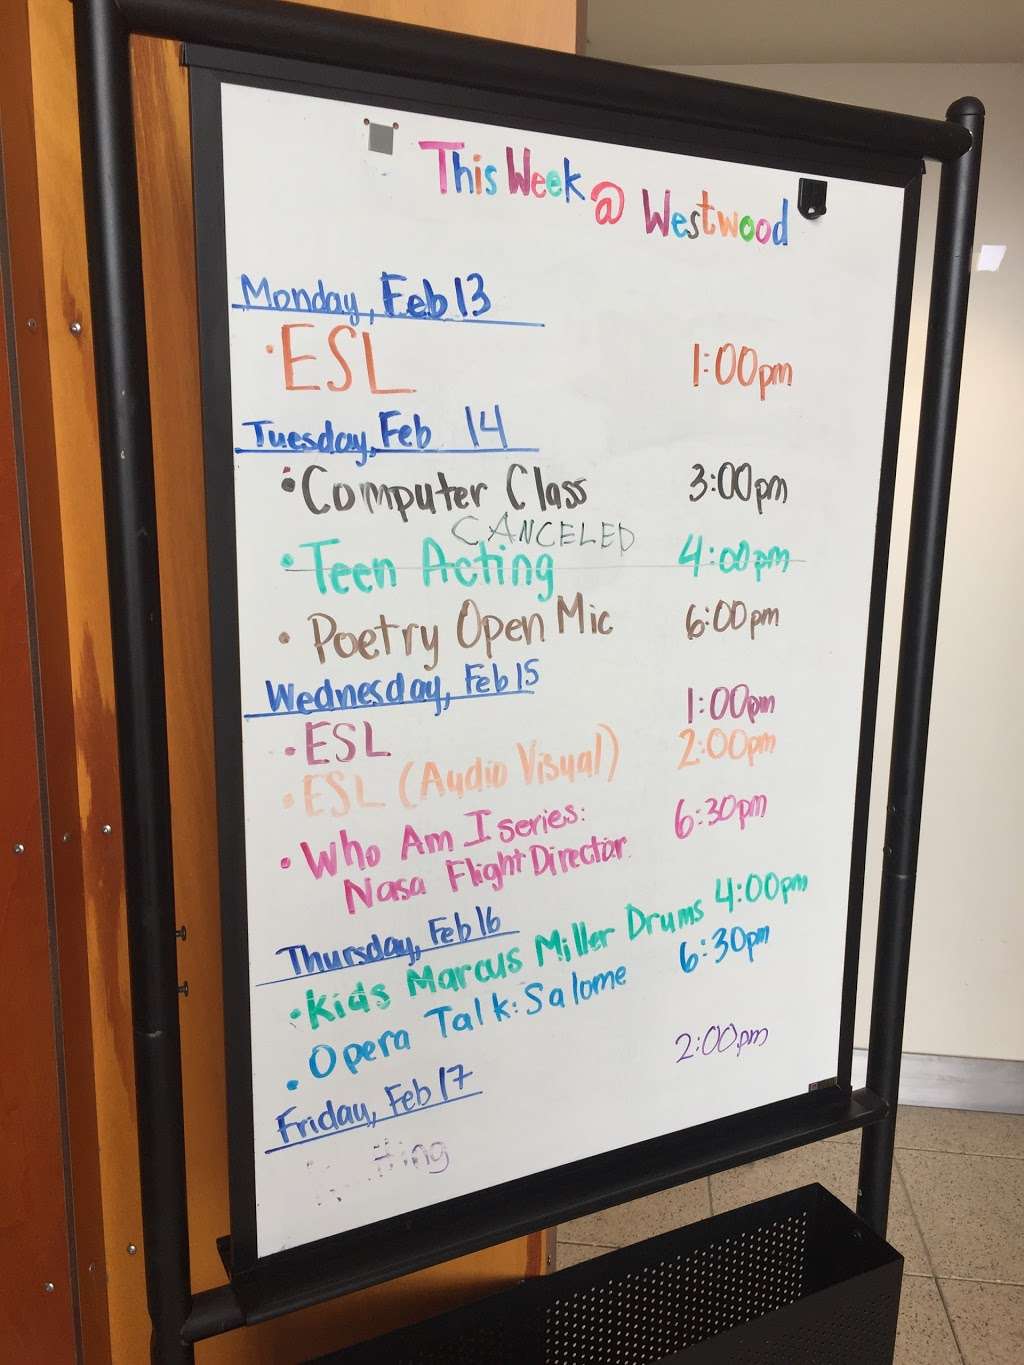 This Week @ Westwood
Monday, Feb 13
• ESL 1:00pm
Tuesday, Feb 14
• Computer Class 3:00pm
CANCELED
• Teen Acting 4:00pm
• Poetry Open Mic 6:00pm
Wednesday, Feb 15
• ESL 1:00pm
• ESL (Audio Visual) 2:00pm
• Who Am I series: 6:30pm
Nasa Flight Director
Thursday, Feb 16
• Kids Marcus Miller Drums 4:00pm
• Opera Talk: Salome 6:30pm
Friday, Feb 17
2:00pm